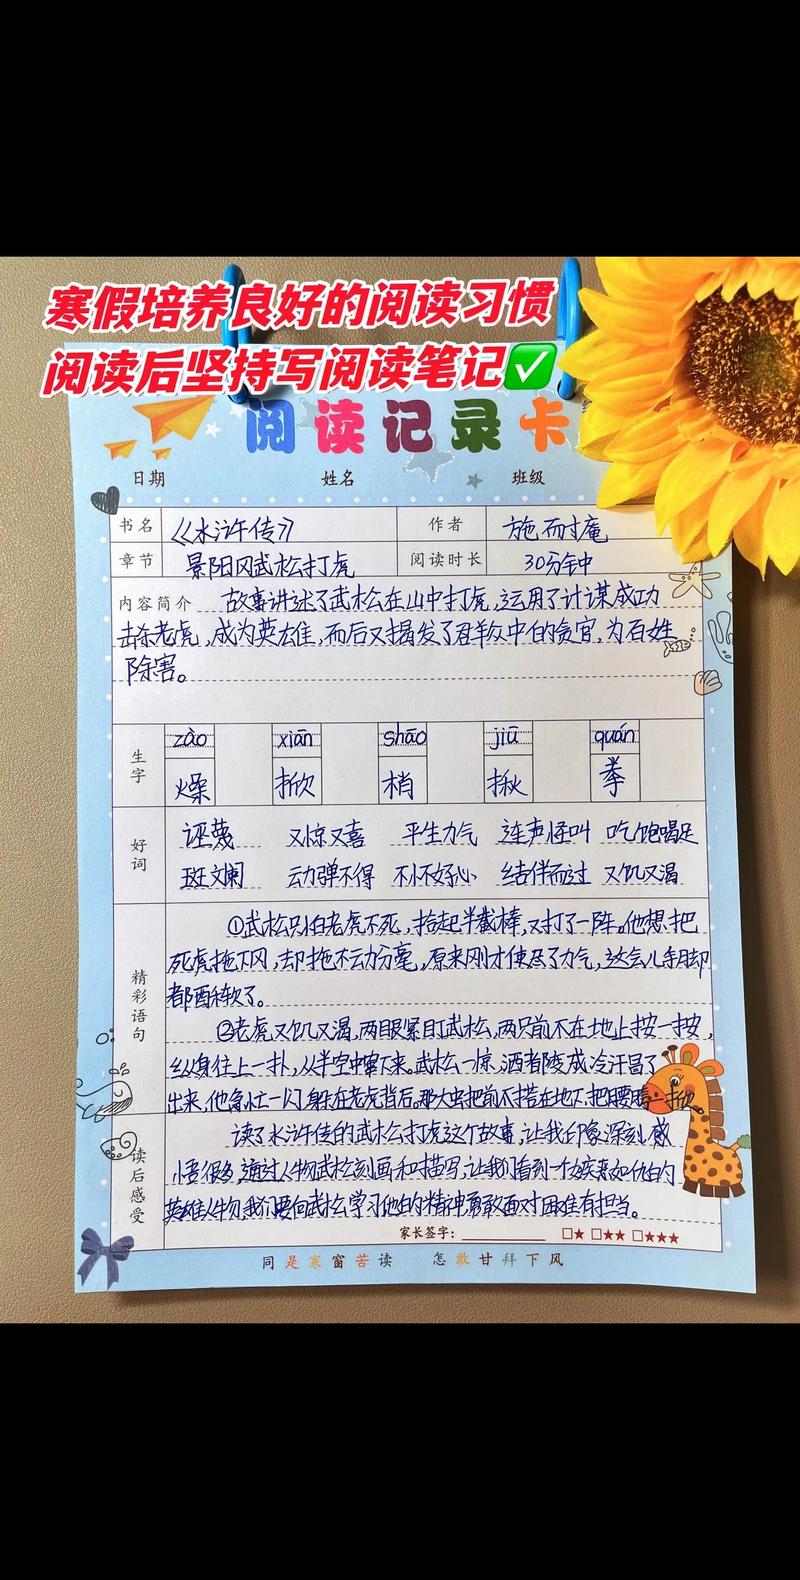 寒假培养良好的阅读习惯
阅读后坚持写阅读笔记✅
阅读记录卡
日期 姓名 班级
书名 《水浒传》 作者 施耐庵
章节 景阳冈武松打虎 阅读时长 30分钟
内容简介 故事讲述了武松在山中打虎,运用了计谋成功
去除老虎,成为英雄,而后又揭发了群众中的贪官,为百姓
除害。
生字
zào xiān shāo jiū quán
燥 掀 梢 揪 拳
好词
诬蔑 又惊又喜 平生力气 连声怪叫 吃饱喝足
斑斓 动弹不得 不怀好心 结伴而过 又饥又渴
精彩语句
①武松只怕老虎不死,拾起半截棒,又打了一阵。他想把
死虎拖下冈,却拖不动分毫,原来刚才使尽了力气,这会儿手脚
都酥软了。
②老虎又饥又渴,两眼紧盯武松,两只前爪在地上按一按,
纵身往上一扑,从半空中窜下来。武松一惊,酒都变成冷汗冒了
出来,他急忙一闪,躲在老虎背后。那大虫把前爪搭在地下,把腰胯一掀
读后感受
读了水浒传的武松打虎这个故事,让我印象深刻,感
悟很多,通过人物武松刻画和描写,让我们看到一个嫉恶如仇的
英雄人物,我们要向武松学习他的精神,勇敢面对困难有担当。
家长签字: □★ □★★ □★★★
同是寒窗苦读 怎敢甘拜下风